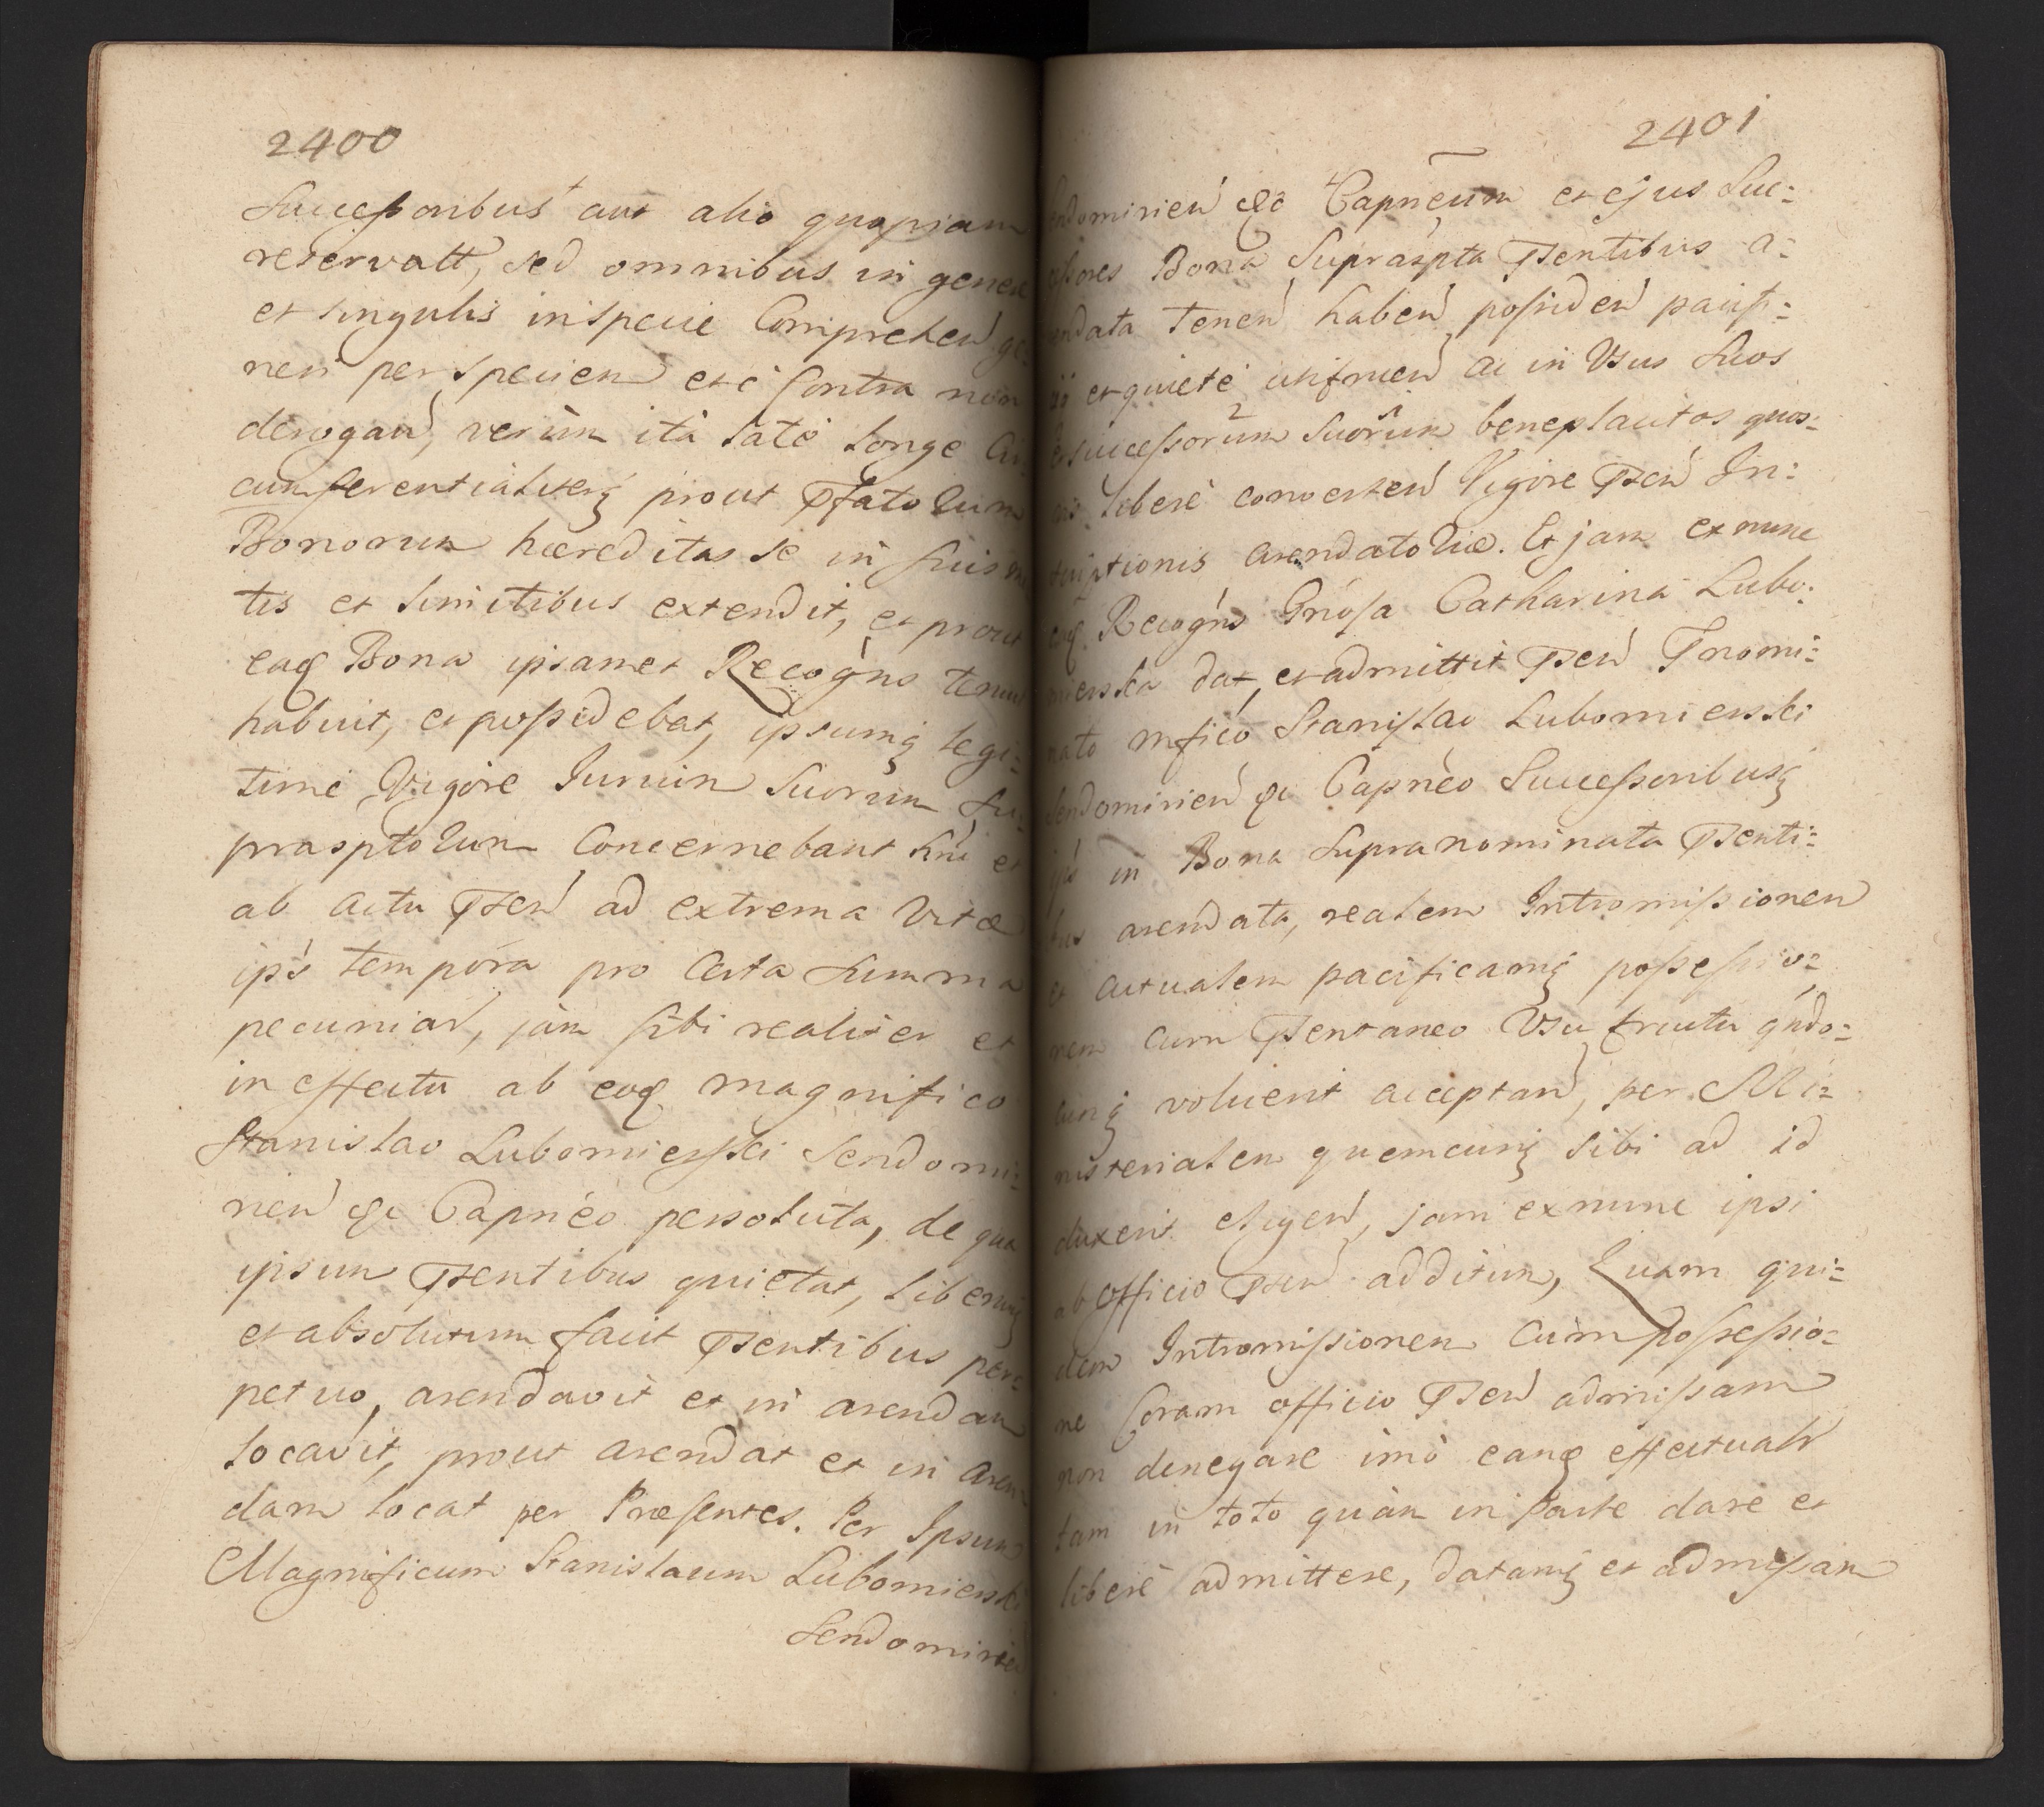 2400
Successoribus aut alio quopiam
reservatt, sed omnibus in genere
et singulis inspecie Comprehen͠d ge-
neri per speciem et è Contra non
derogan͠d, verùm ità latè longè Cir-
cumferentialiterq; prout Pfatorum
Bonorum hæreditas se in suis me-
tis et limitibus extendit, et prout
eaq Bona ipsamet Recogn͠s tenuit
habuit, et possidebat, ipsumq; legi-
timè Vigore Iurium Suorum Su-
prasptorum Concernebant hńi et
ab actu Psen͠d ad extrema Vitæ
ips̀ tempora pro Certa Summa
pecuniar, jàm sibi realiter et
in effectu ab eoq magnifico
Stanislao Lubomierski Sendomi-
rien͠d &c Capn͠eo persoluta, de qua
ipsum Psentibus quietat, liberumq;
et absolutum facit Psentibus per-
petuo, arendavit et in arendam
locavit, prout arendat et in aren-
dam locat per Præsentes. Per Ipsum
Magnificum Stanislaum Lubomierski
Sendomirien
2401
endomirien͠d &c Capn͠eum et ejus Suc-
cessores Bona Supraspta Psentibus a-
rendata tenen͠d haben͠d possiden͠d pacifi-
cè et quietè utifruen͠d ac in Usus Suos
et Successorum Suorum beneplacitos quos-
vis liberè converten͠d Vigore Psen͠d In-
scriptionis arendatoriæ. Et jam exnunc
eaq Recogn͠s Gn͠osa Catharina Lubo-
mierska dat, et admittit Psen͠d Pnomi-
nato mfico Stanislao Lubomierski
Sendomirien͠d &c Capn͠eo Successoribusq;
ips̀ in Bona Supranominata Psenti-
bus arendata, realem Intromissionem
et actualem pacificamq; possessio-
nem cum Psentaneo Usu fructu q͠ndo-
cunq; voluerit acceptan͠d, per Mi-
nisterialem quemcunq; sibi ad id
duxerit eligen͠d, jam exnunc ipsi
ab Officio Psen͠d additum, Quam qui-
dem Intromissionem Cum Possessio-
ne Coram officio Psen͠d admissam
non denegare imò eanq effectualr
tam in toto quàm in Parte dare et
liberè admittere, datamq; et admissam